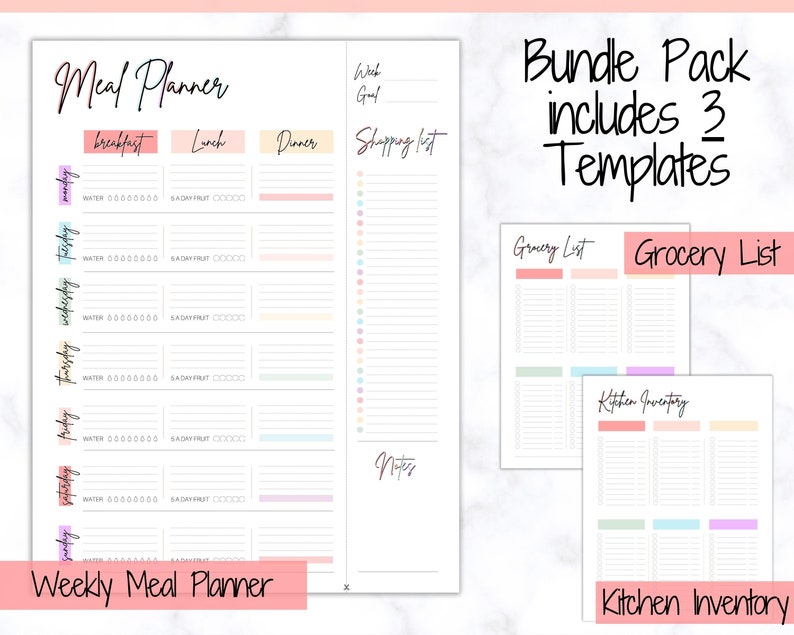 Meal Planner
Week
Goal
breakfast
Lunch
Dinner
Shopping list
monday
WATER
5 A DAY FRUIT
tuesday
WATER
5 A DAY FRUIT
wednesday
WATER
5 A DAY FRUIT
thursday
WATER
5 A DAY FRUIT
friday
WATER
5 A DAY FRUIT
saturday
WATER
5 A DAY FRUIT
sunday
WATER
5 A DAY FRUIT
Notes
Weekly Meal Planner
Bundle Pack
includes 3
Templates
Grocery List
Grocery List
Kitchen Inventory
Kitchen Inventory